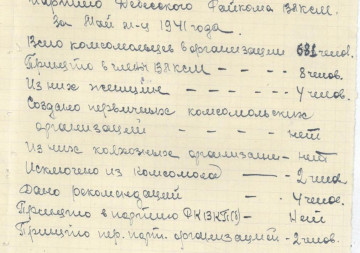 Дебесского Райкома ВЛКСМ.
За Май м-ц 1941 года.
Всего комсомольцев в организации 631 челов.
Принято в члены ВЛКСМ - - 8 челов.
Из них женщин - - - - 4 челов.
Создано первичных комсомольских
организаций - - - - нет
Из них колхозных организац - нет
Исключено из Комсомола - - 2 челов
Дано рекомендаций - 4 челов.
Принято в партию РК ВКП(б) - Нет
Принято пер. парт. организацией - 2 челов.